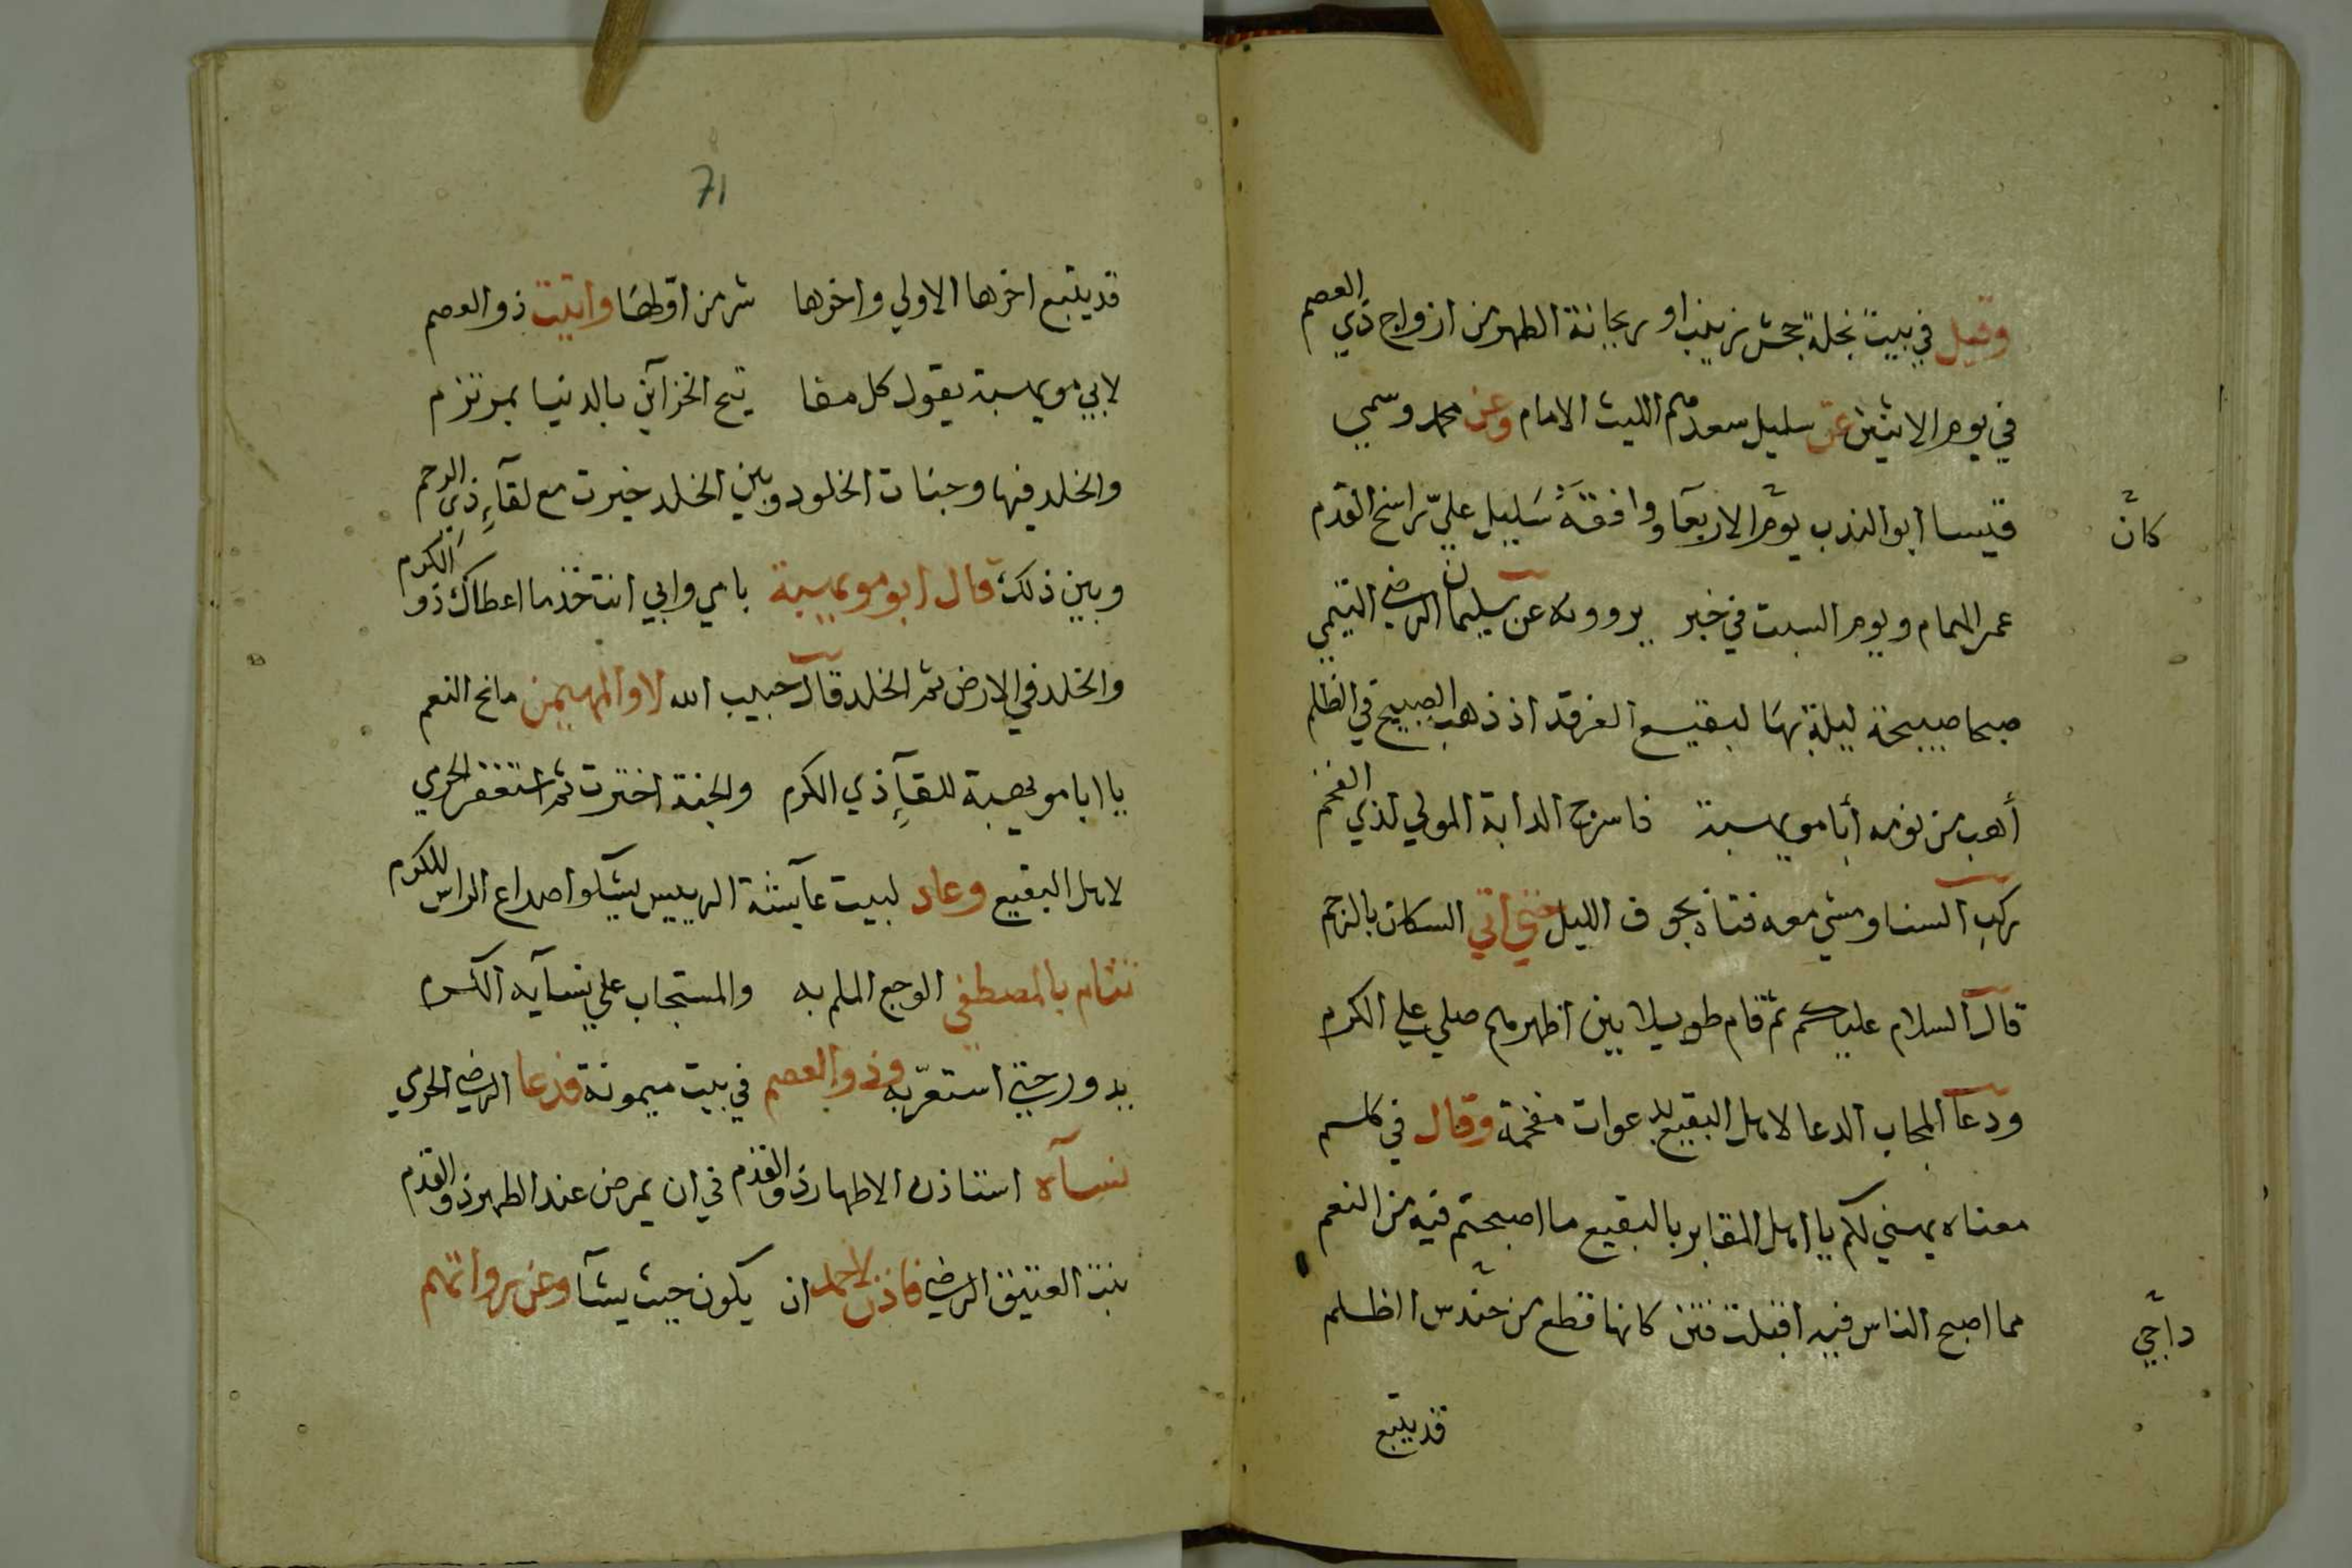 وقيل في بيت نجلة جحش زينب او ريحانة الطهر من ازواج ذي العصم
في يوم الاثنين عن سليل سعدهم الليث الامام وعن محمد وسمي
كان
قيسا ابو الندب يوم الاربعآ ووافقة سليل علي راسخ القدم
عمر الهمام ويوم السبت في خبر يروونه عن سليمان الرضي التيمي
صبحا صبيحة ليلة بها لبقيع الغرقد اذ ذهب الصبيح في الظلم
أهب من نومه أبا مويهبة فاسرج الدابة المولي لذي الفخم
ركب السنا ومشي معه فتاه بجوف الليل حتي اتي السكان بالرجم
قال السلام عليكم ثم قام طويلا بين اظهرهم صلي علي الكرم
ودعا المجاب الدعا لاهل البقيع بدعوات مفخمة وقال في كلم
معناه يهني لكم يا اهل المقابر بالبقيع ما اصبحتم فيه من النعم
مما اصبح الناس فيه اقبلت فتن كانها قطع من حندس الظلم
داجي
قد يتبع
71
قد يتبع اخرها الاولي واخرها شر من اولها واتيت ذو العصم
لابي مويهبة يقول كل مفا تيح الخزآئن بالدنيا بمرتزم
والخلد فيها وجنات الخلود وبين الخلد خيرت مع لقآء ذي الرحم
وبين ذلك قال ابو مويهبة بامي وابي انت خذ ما اعطاك ذو الكرم
والخلد في الارض ثم الخلد قال حبيب الله لا والمهيمن مانح النعم
يا ابا مويهبة للقآء ذي الكرم والجنة اخترت ثم استغفر الحرمي
لاهل البقيع وعاد لبيت عآيشة الرييس يشكوا صداع الراس للكرم
تتام بالمصطفي الوجع الملم به والمستجاب علي نسآيه الكرم
يدور حتي استعزّ به وذو العصم في بيت ميمونة فدعا الرضي الحرمي
نسآه استاذن الاطهار ذو القدم في ان يمرض عند الطهر ذو القدم
بنت العتيق الرضي فاذن لاحمد ان يكون حيث يشآ وعن رواتهم